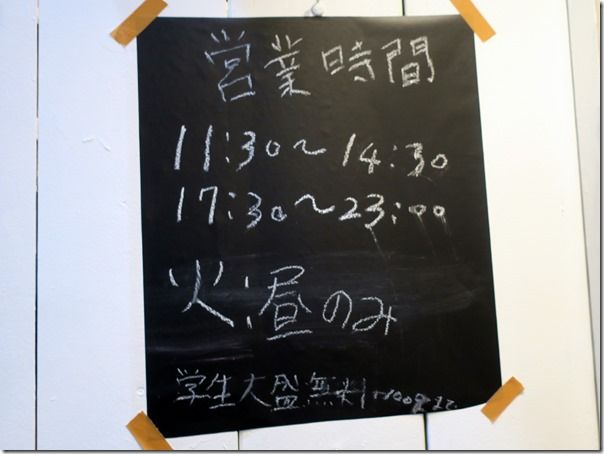 営業時間
11:30〜14:30
17:30〜23:00
火:昼のみ
学生大盛無料